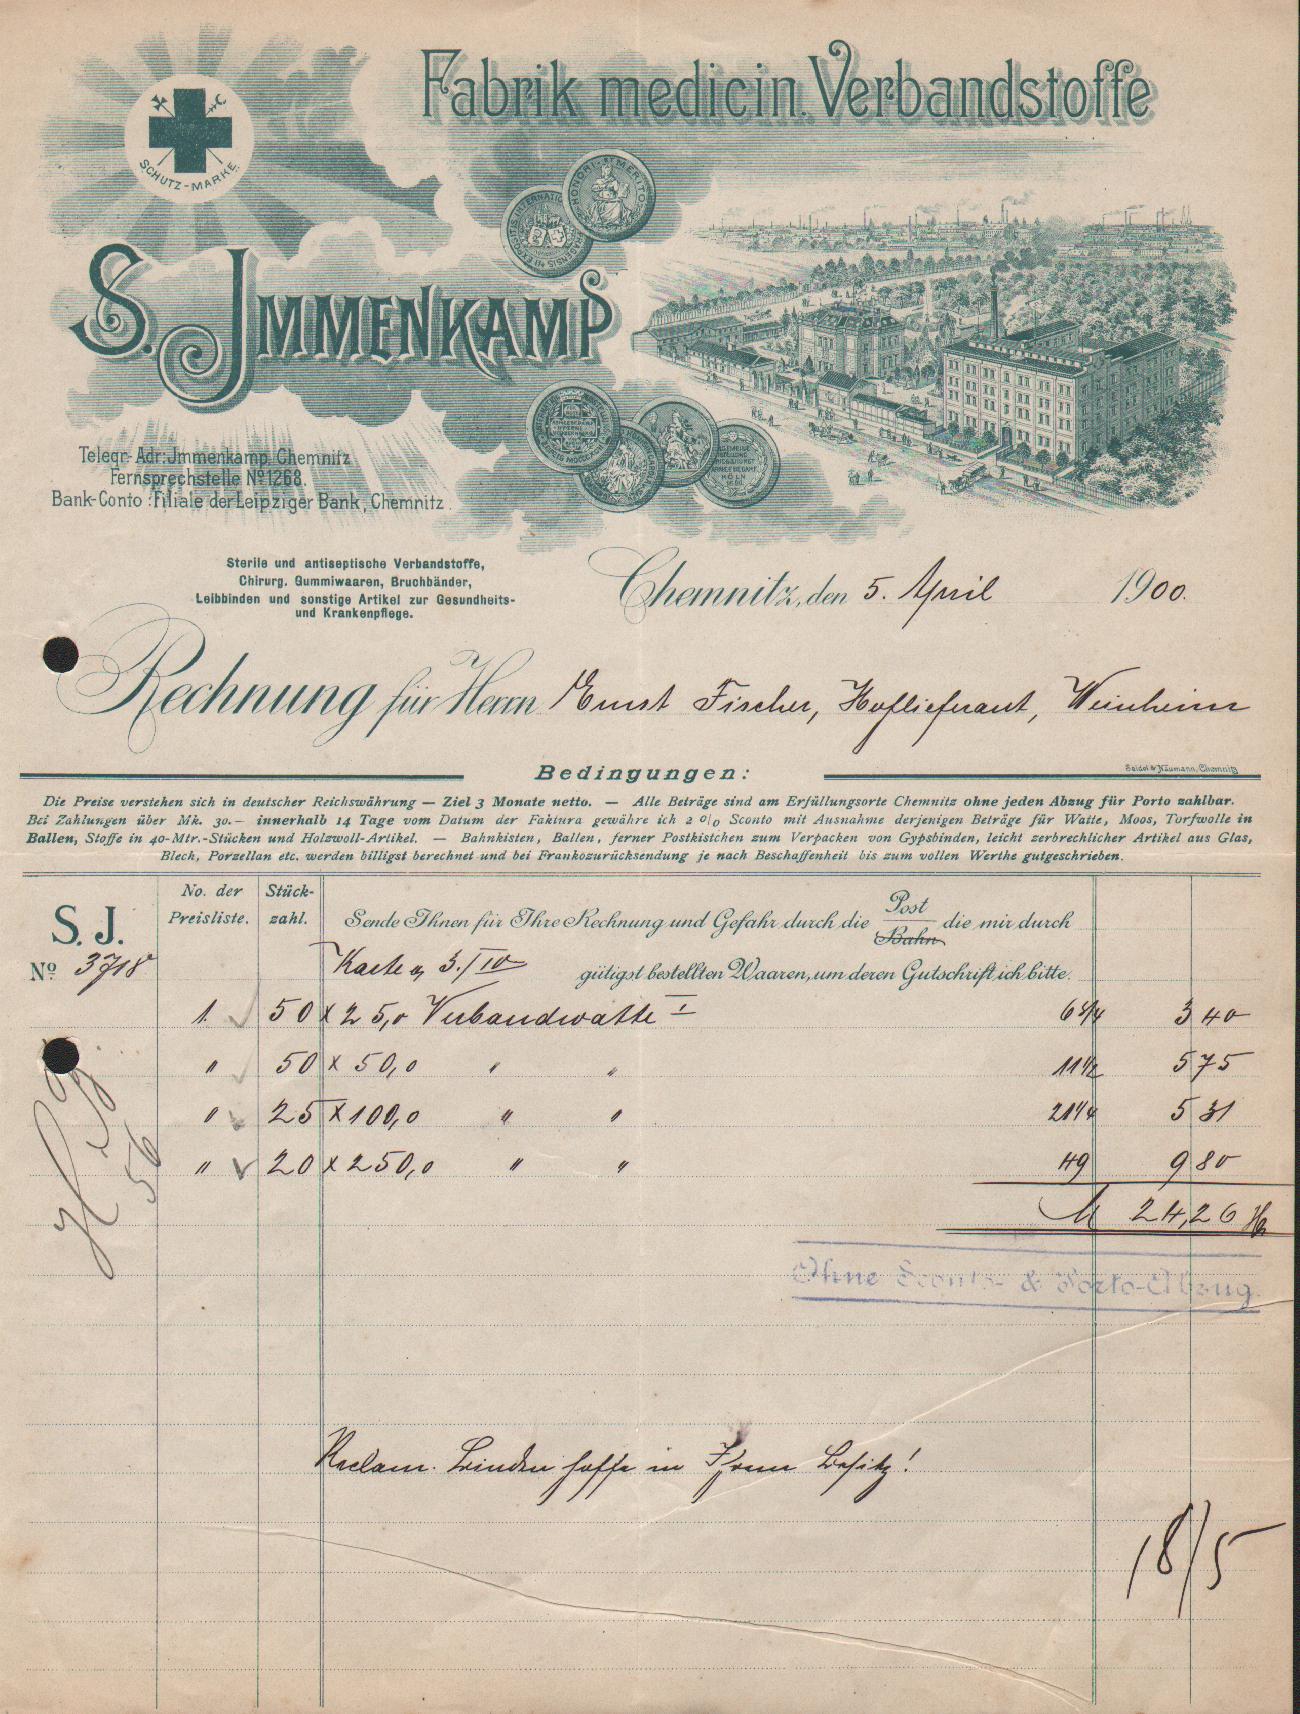 Fabrik medicin. Verbandstoffe
SCHUTZ-MARKE
HONORI MERITO
S. JMMENKAMP
Telegr.-Adr: Jmmenkamp Chemnitz
Fernsprechstelle No 1268.
Bank-Conto: Filiale der Leipziger Bank, Chemnitz.
Sterile und antiseptische Verbandstoffe,
Chirurg. Gummiwaaren, Bruchbänder,
Leibbinden und sonstige Artikel zur Gesundheits-
und Krankenpflege.
Chemnitz, den 5. April 1900.
Rechnung für Herrn Ernst Fischer, Hoflieferant, Weinheim
Seidel & Naumann, Chemnitz
Bedingungen:
Die Preise verstehen sich in deutscher Reichswährung — Ziel 3 Monate netto. — Alle Beträge sind am Erfüllungsorte Chemnitz ohne jeden Abzug für Porto zahlbar.
Bei Zahlungen über Mk. 30.— innerhalb 14 Tage vom Datum der Faktura gewähre ich 2 % Sconto mit Ausnahme derjenigen Beträge für Watte, Moos, Torfwolle in
Ballen, Stoffe in 40-Mtr.-Stücken und Holzwoll-Artikel. — Bahnkisten, Ballen, ferner Postkistchen zum Verpacken von Gypsbinden, leicht zerbrechlicher Artikel aus Glas,
Blech, Porzellan etc. werden billigst berechnet und bei Frankozurücksendung je nach Beschaffenheit bis zum vollen Werthe gutgeschrieben.
S. J.
No 3718
No. der Preisliste.
Stück-zahl.
Sende Ihnen für Ihre Rechnung und Gefahr durch die Post Bahn die mir durch
Karte v. 3./IV gütigst bestellten Waaren, um deren Gutschrift ich bitte.
1. 50 x 25,0 Verbandwatte I 6 3/4 3 40
" 50 x 50,0 " " 11 1/2 5 75
" 25 x 100,0 " " 21 1/4 5 31
" 20 x 250,0 " " 49 9 80
M 24,26
56
Ohne Sconto- & Porto-Abzug.
Reclam. Binden hoffe in Ihrem Besitz!
18/5